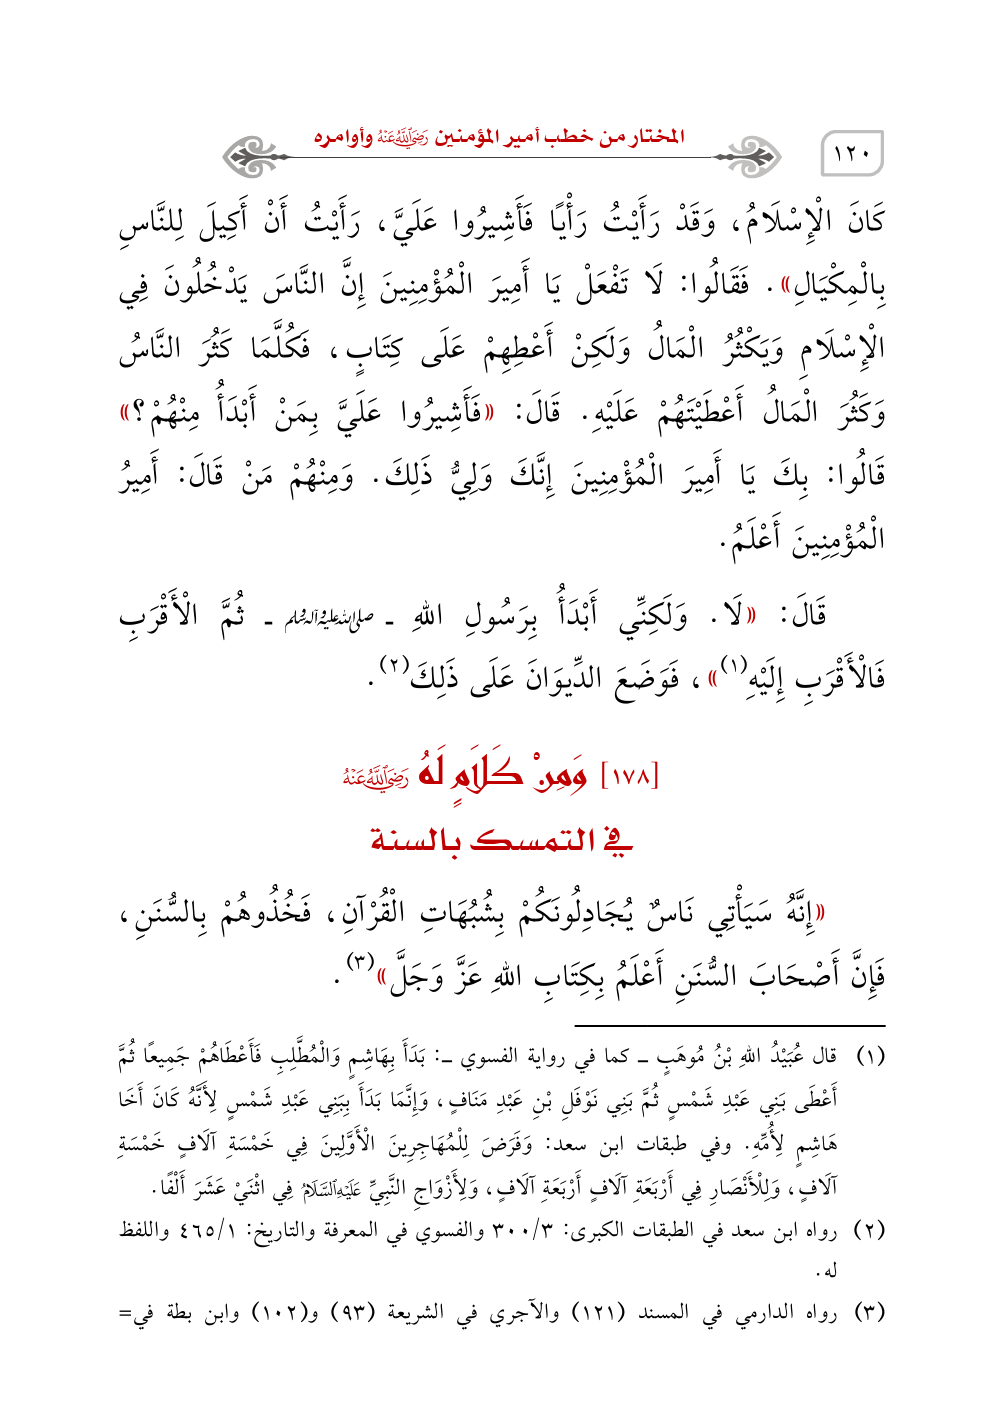 ١٢٠
المختار من خطب أمير المؤمنين رَضِيَ اللَّهُ عَنْهُ وأوامره
كَانَ الْإِسْلَامُ، وَقَدْ رَأَيْتُ رَأْيًا فَأَشِيرُوا عَلَيَّ، رَأَيْتُ أَنْ أَكِيلَ لِلنَّاسِ
بِالْمِكْيَالِ». فَقَالُوا: لَا تَفْعَلْ يَا أَمِيرَ الْمُؤْمِنِينَ إِنَّ النَّاسَ يَدْخُلُونَ فِي
الْإِسْلَامِ وَيَكْثُرُ الْمَالُ وَلَكِنْ أَعْطِهِمْ عَلَى كِتَابٍ، فَكُلَّمَا كَثُرَ النَّاسُ
وَكَثُرَ الْمَالُ أَعْطَيْتَهُمْ عَلَيْهِ. قَالَ: «فَأَشِيرُوا عَلَيَّ بِمَنْ أَبْدَأُ مِنْهُمْ؟»
قَالُوا: بِكَ يَا أَمِيرَ الْمُؤْمِنِينَ إِنَّكَ وَلِيُّ ذَلِكَ. وَمِنْهُمْ مَنْ قَالَ: أَمِيرُ
الْمُؤْمِنِينَ أَعْلَمُ.
قَالَ: «لَا. وَلَكِنِّي أَبْدَأُ بِرَسُولِ اللهِ ـ صلى الله عليه وآله وسلم ـ ثُمَّ الْأَقْرَبِ
فَالْأَقْرَبِ إِلَيْهِ(١)»، فَوَضَعَ الدِّيوَانَ عَلَى ذَلِكَ(٢).
[١٧٨] وَمِنْ كَلَامٍ لَهُ رَضِيَ اللَّهُ عَنْهُ
في التمسك بالسنة
«إِنَّهُ سَيَأْتِي نَاسٌ يُجَادِلُونَكُمْ بِشُبُهَاتِ الْقُرْآنِ، فَخُذُوهُمْ بِالسُّنَنِ،
فَإِنَّ أَصْحَابَ السُّنَنِ أَعْلَمُ بِكِتَابِ اللهِ عَزَّ وَجَلَّ»(٣).
(١) قال عُبَيْدُ اللهِ بْنُ مُوهَبٍ ـ كما في رواية الفسوي ـ: بَدَأَ بِهَاشِمٍ وَالْمُطَّلِبِ فَأَعْطَاهُمْ جَمِيعًا ثُمَّ
أَعْطَى بَنِي عَبْدِ شَمْسٍ ثُمَّ بَنِي نَوْفَلِ بْنِ عَبْدِ مَنَافٍ، وَإِنَّمَا بَدَأَ بِبَنِي عَبْدِ شَمْسٍ لِأَنَّهُ كَانَ أَخَا
هَاشِمٍ لِأُمِّهِ. وفي طبقات ابن سعد: وَفَرَضَ لِلْمُهَاجِرِينَ الْأَوَّلِينَ فِي خَمْسَةِ آلَافٍ خَمْسَةِ
آلَافٍ، وَلِلْأَنْصَارِ فِي أَرْبَعَةِ آلَافٍ أَرْبَعَةِ آلَافٍ، وَلِأَزْوَاجِ النَّبِيِّ عَلَيْهِ السَّلَامُ فِي اثْنَيْ عَشَرَ أَلْفًا.
(٢) رواه ابن سعد في الطبقات الكبرى: ٣/ ٣٠٠ والفسوي في المعرفة والتاريخ: ١/ ٤٦٥ واللفظ
له.
(٣) رواه الدارمي في المسند (١٢١) والآجري في الشريعة (٩٣) و(١٠٢) وابن بطة في=